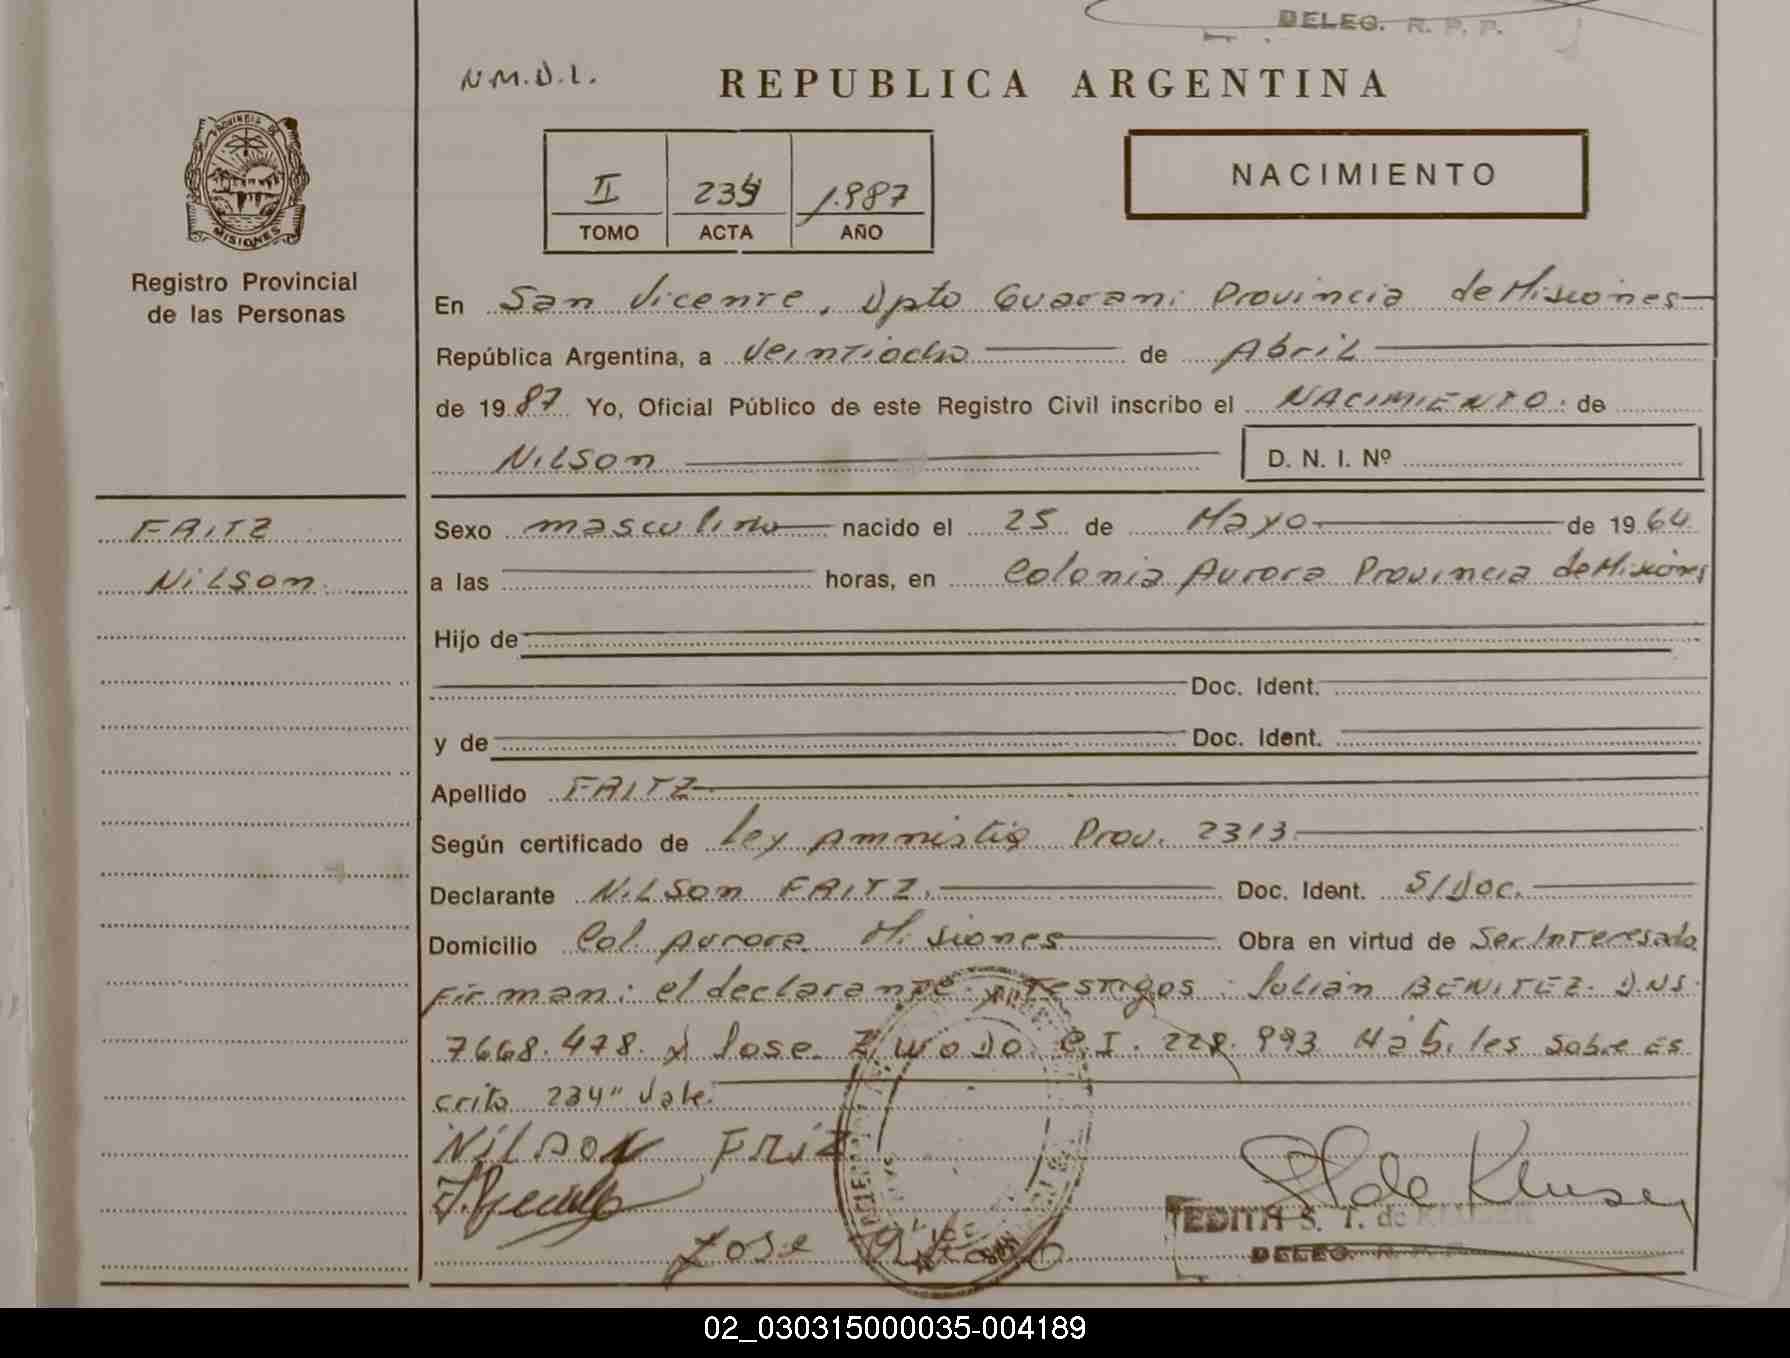 DELEG. R. P. P.
N.M.D.L.
REPUBLICA ARGENTINA
PROVINCIA DE
MISIONES
Registro Provincial
de las Personas
II 234 1.987
TOMO ACTA AÑO
NACIMIENTO
En San Vicente, Dpto Guarani Provincia de Misiones
República Argentina, a veintiocho de Abril
de 1987 Yo, Oficial Público de este Registro Civil inscribo el NACIMIENTO. de
Nilson D. N. I. Nº
FRITZ
Nilson.
Sexo masculino nacido el 25 de Mayo de 1964
a las horas, en Colonia Aurora Provincia de Misiones
Hijo de
Doc. Ident.
y de Doc. Ident.
Apellido FRITZ
Según certificado de Ley Amnistia Prov. 2313.
Declarante Nilson FRITZ. Doc. Ident. S/Doc.
Domicilio Col. Aurora Misiones Obra en virtud de Ser Interesado
Firman: el declarante y Testigos: Julian BENITEZ. D.N.I.
7668.478. y Jose C.I. 228.993 Hábiles sobre es
crito 234" Vale.
NiLSON FRiZ
Jose
EDITH S. T. de KLUSENER
DELEG. R. P. P.
02_030315000035-004189